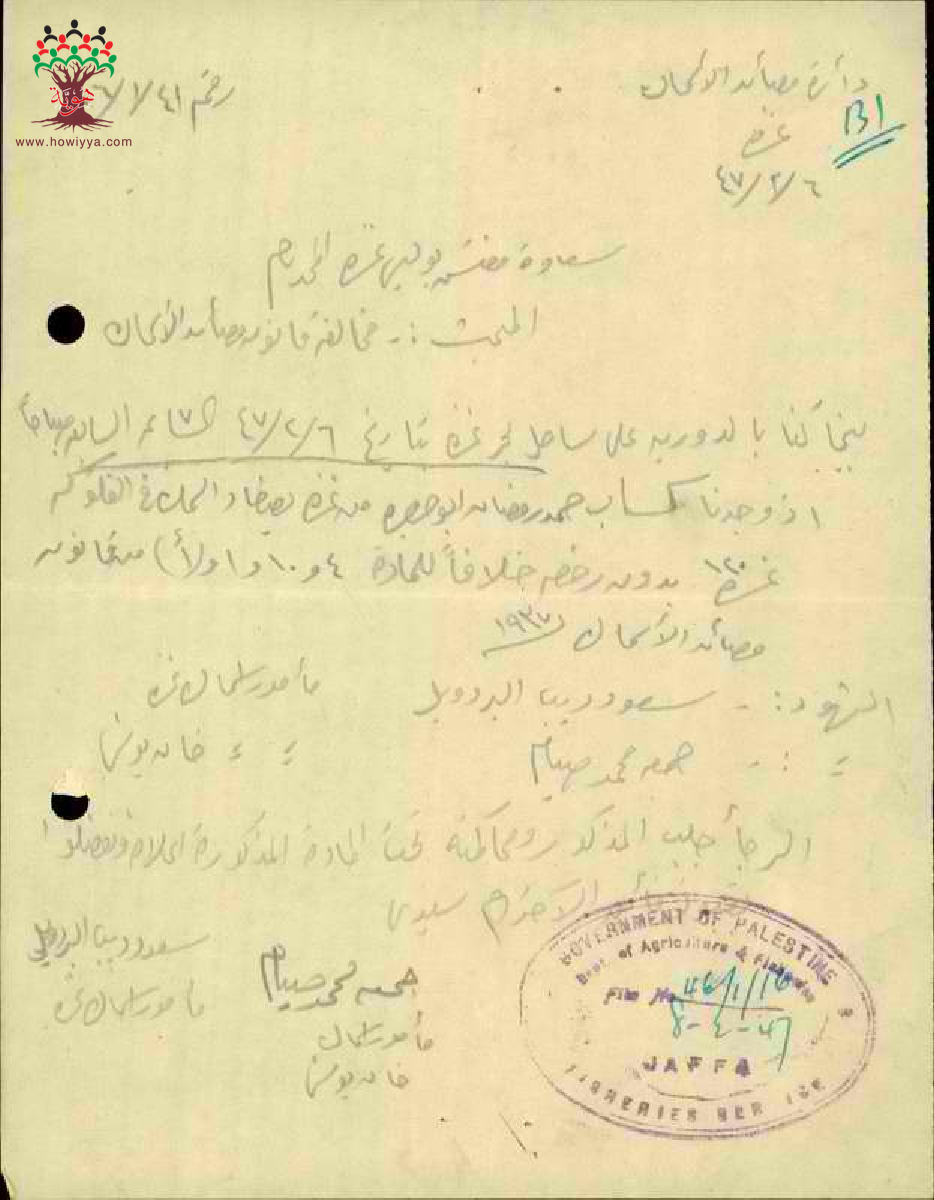 www.howiyya.com
دائرة مصائد الأسماك
رقم ٤١/١/٦
B1
غزة
٤٧/٢/٦
سعادة مفتش بوليس غزة المحترم
المبحث :- مخالفة قانون مصائد الأسماك
بينما كنا بالدورية على ساحل بحر غزة بتاريخ ٤٧/٢/٦ الساعة السابعة صباحاً
اذ وجدنا كساب حمد رمضان ابو من غزة يصطاد السمك في الفلوكة
غزة ١٢٠ بدون رخصة خلافاً للمادة ٤ و ١٠ و (اولاً) من قانون
مصائد الأسماك ١٩٣٧
الشهود :- سعود ديب البردويل مأمور اسماك غزة
= :- جمعه محمد صيام = = خان يونس
الرجا جلب المذكور ومحاكمته تحت المادة المذكورة اعلاه وتفضلوا
الاحترام سيدي
سعود ديب البردويل
مأمور اسماك غزة
جمعه محمد صيام
مأمور اسماك
خان يونس
GOVERNMENT OF PALESTINE
Dept. of Agriculture & Fisheries
File No 46/1/16
8-2-47
JAFFA
FISHERIES SERVICE